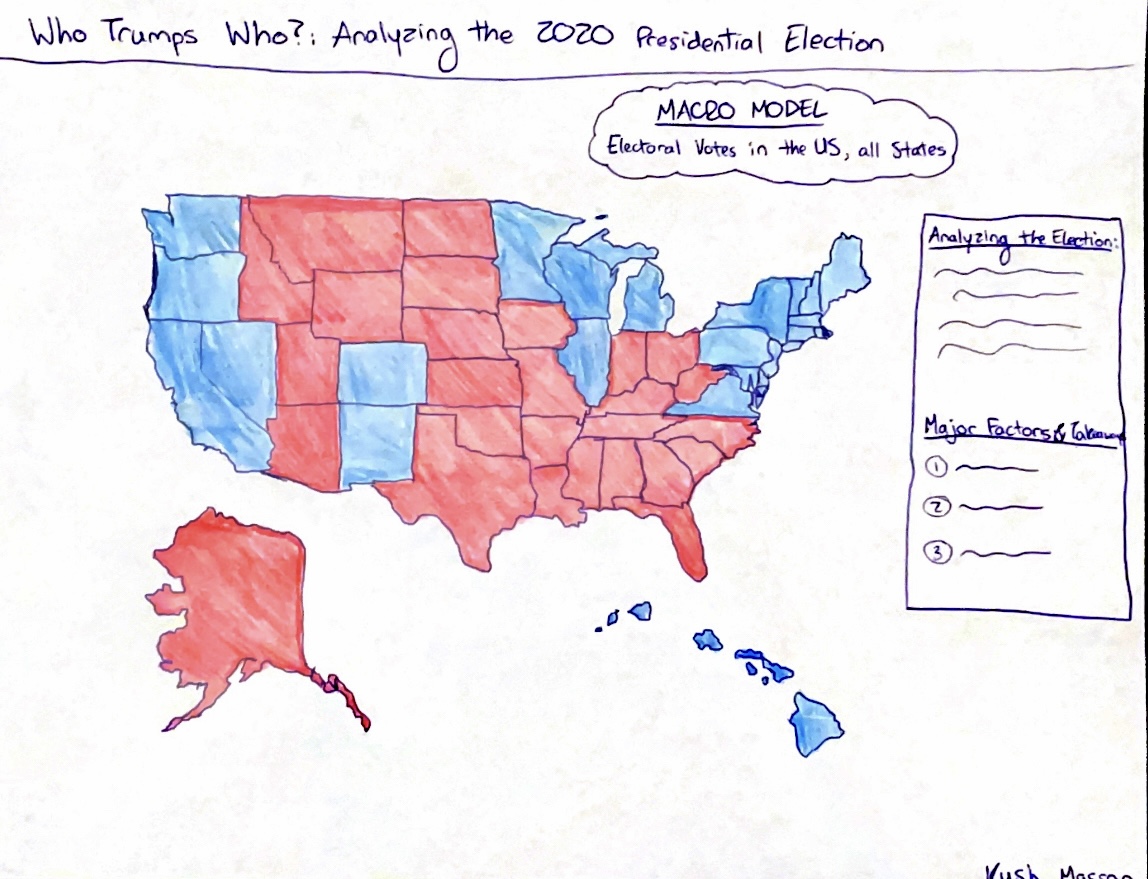 Who Trumps Who?: Analyzing the 2020 Presidential Election
MACRO MODEL
Electoral Votes in the US, all States
Analyzing the Election:
Major Factors &
1
2
3
Kush